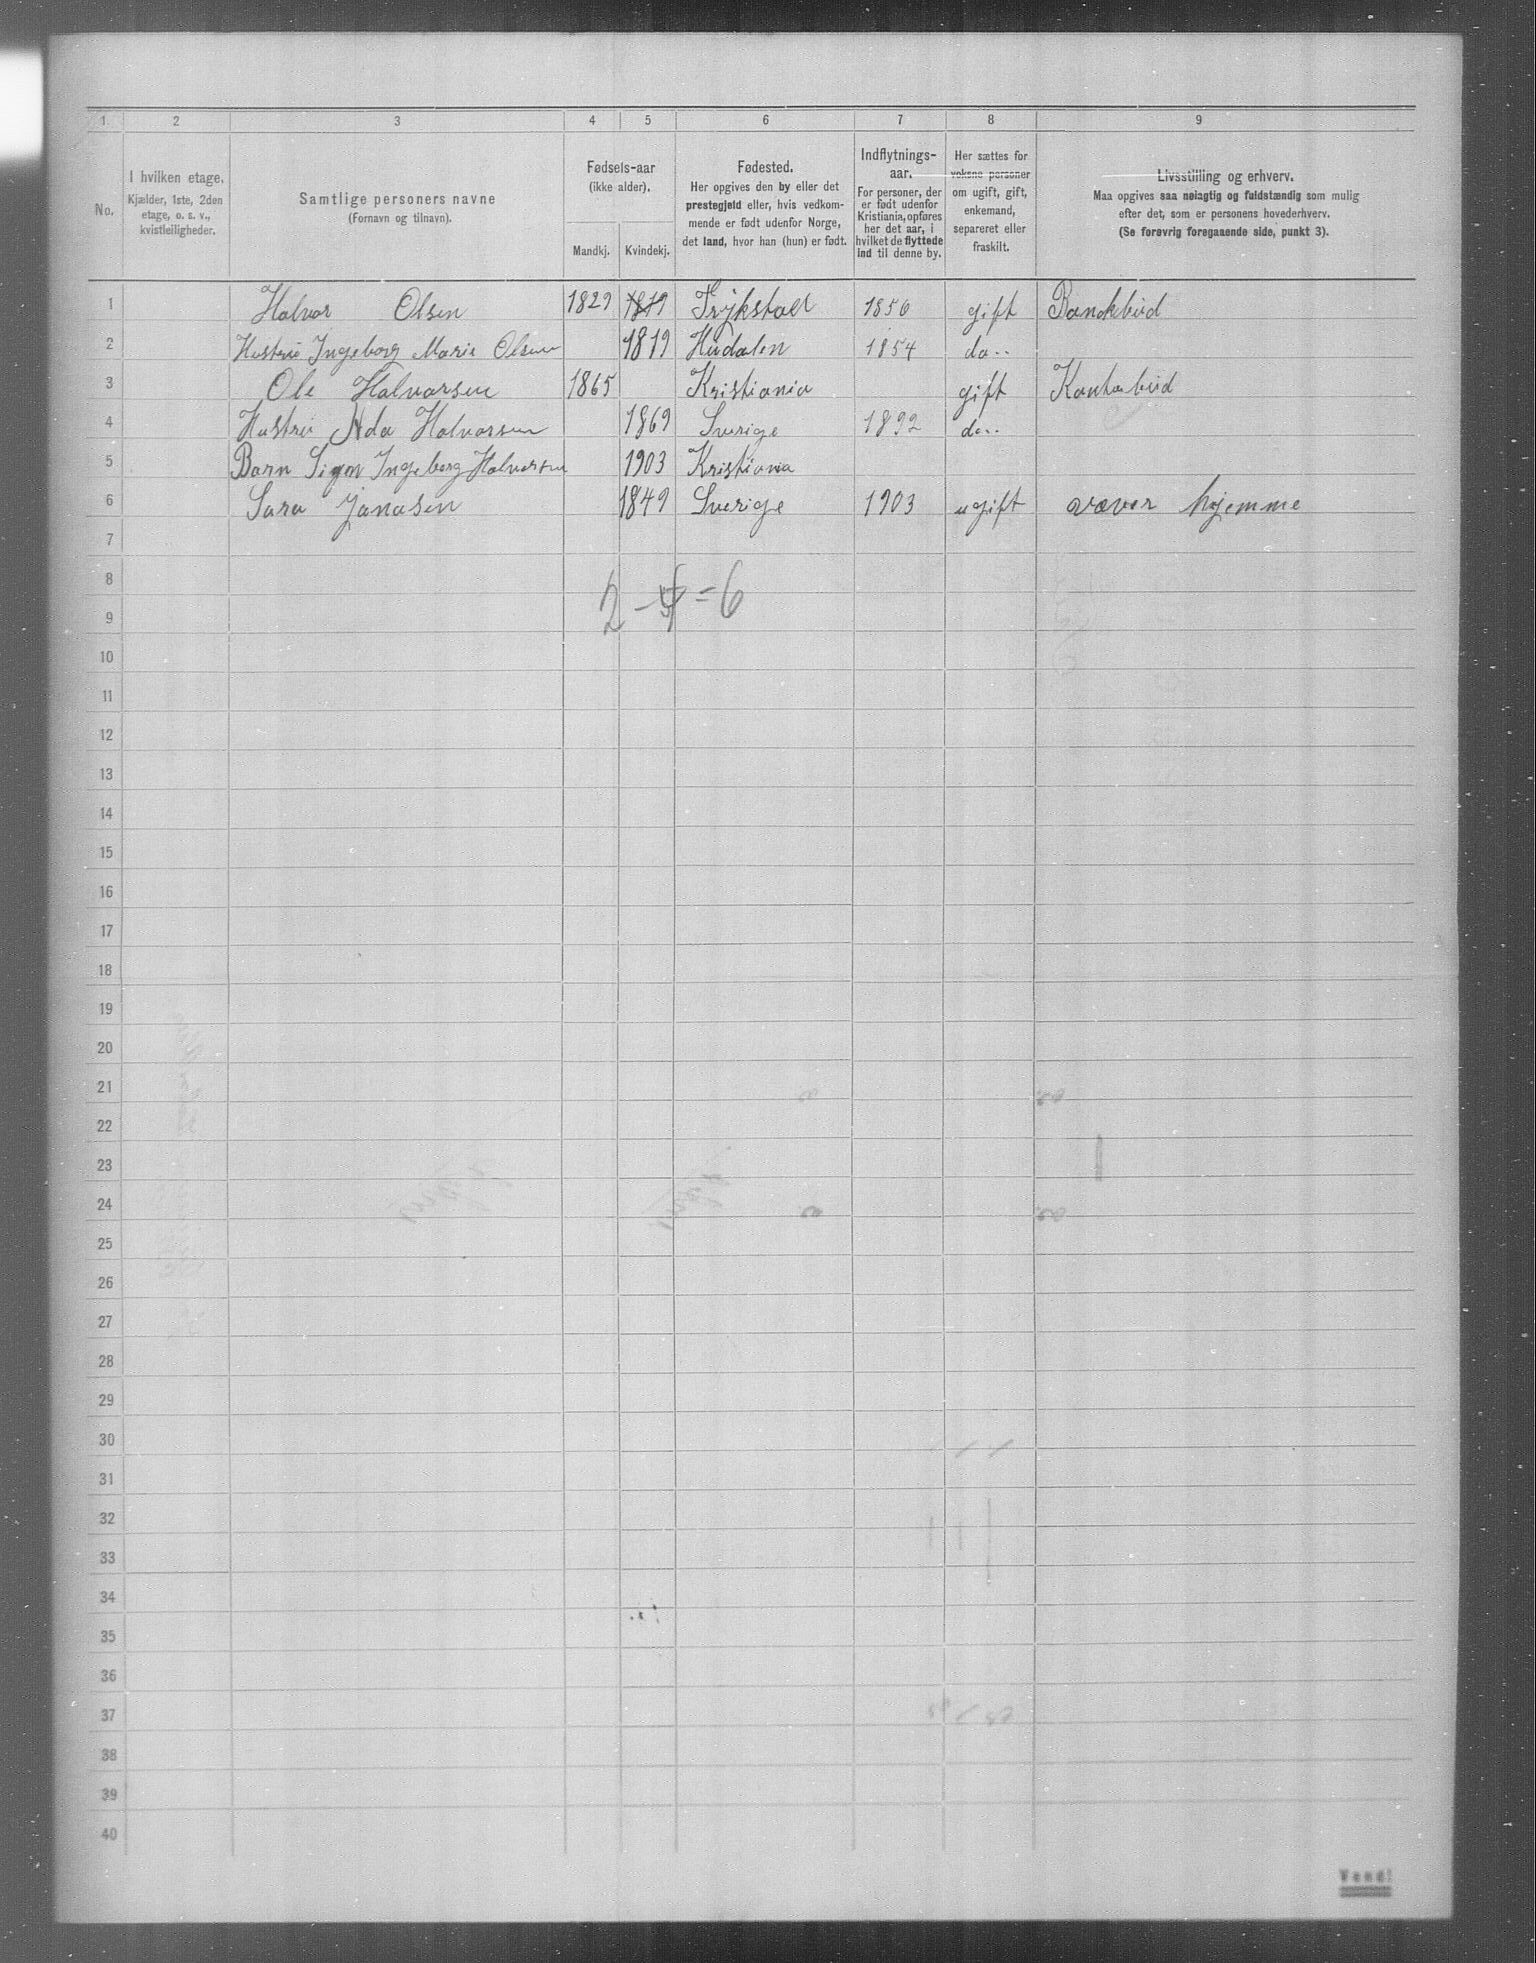 1 2 3 4 5 6 7 8 9
No.
I hvilken etage.
Kjælder, 1ste, 2den
etage, o. s. v.,
kvistleiligheder.
Samtlige personers navne
(Fornavn og tilnavn).
Fødsels-aar
(ikke alder).
Mandkj. Kvindekj.
Fødested.
Her opgives den by eller det
prestegjeld eller, hvis vedkom-
mende er født udenfor Norge,
det land, hvor han (hun) er født.
Indflytnings-
aar.
For personer, der
er født udenfor
Kristiania, opføres
her det aar, i
hvilket de flyttede
ind til denne by.
Her sættes for
voksne personer
om ugift, gift,
enkemand,
separeret eller
fraskilt.
Livsstilling og erhverv.
Maa opgives saa nøiagtig og fuldstændig som mulig
efter det, som er personens hovederhverv.
(Se forøvrig foregaaende side, punkt 3).
1 Halvor Olsen 1829 1819 Trykstall 1856 gift Bankbud
2 Hustru Ingeborg Marie Olsen 1819 Hudalen 1854 do..
3 Ole Halvorsen 1865 Kristiania gift Kontorbud
4 Hustru Ada Halvorsen 1869 Sverige 1892 do..
5 Barn Signe Ingeborg Halvorsen 1903 Kristiania
6 Sara Janasen 1849 Sverige 1903 ugift væver hjemme
7
8
2 - 4 = 6
9
10
11
12
13
14
15
16
17
18
19
20
21
22
23
24
25
26
27
28
29
30
31
32
33
34
35
36
37
38
39
40
Vend!